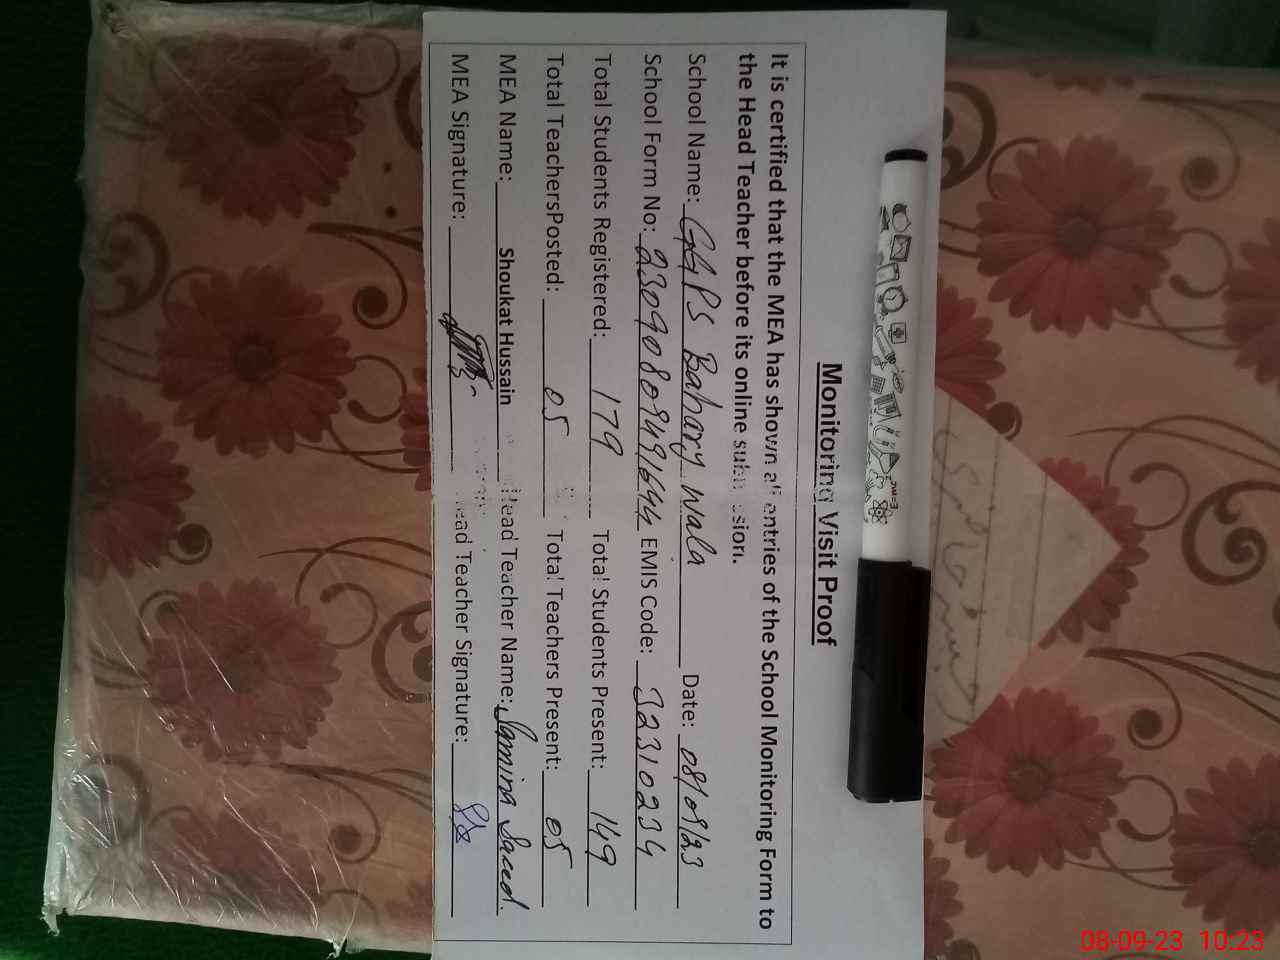 Monitoring Visit Proof
It is certified that the MEA has shown all entries of the School Monitoring Form to
the Head Teacher before its online submission.
School Name: GGPS Bahary Wala Date: 08/09/23
School Form No: 23090809491644 EMIS Code: 32310234
Total Students Registered: 179 Total Students Present: 149
Total TeachersPosted: 05 Total Teachers Present: 05
MEA Name: Shoukat Hussain Head Teacher Name: Samina Saeed.
MEA Signature: Head Teacher Signature:
E=MC
08-09-23 10:23